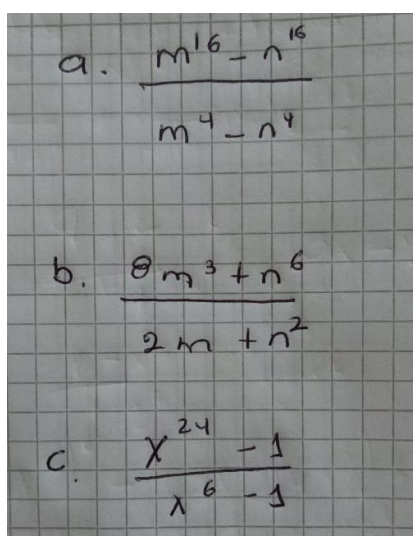 a. m¹⁶ - n¹⁶
m⁴ - n⁴
b. 8m³ + n⁶
2m + n²
c. x²⁴ - 1
x⁶ - 1